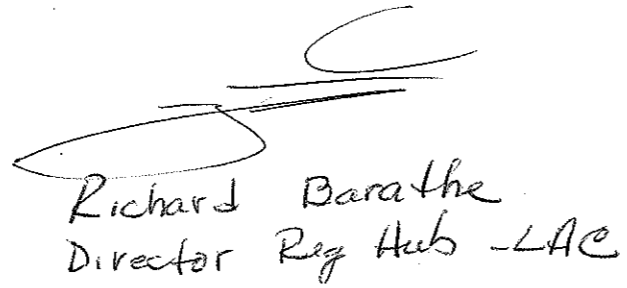 Richard Barathe
Director Reg Hub -LAC